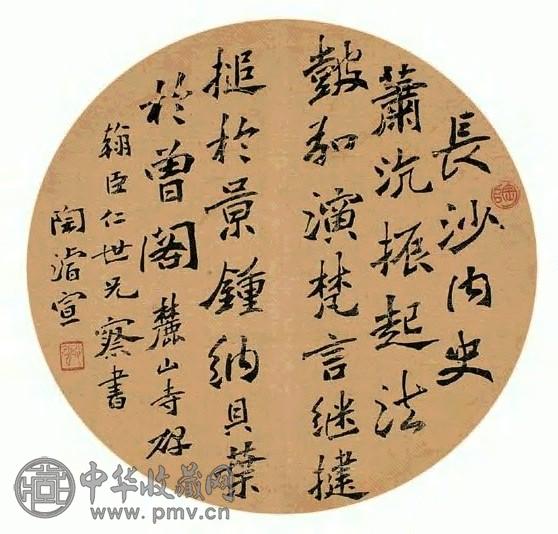 長沙内史
蕭沆振起法
鼓演梵言継揵
搥於景鍾納貝葉
於曽閣 麓山寺碑
翰臣仁世兄察書
陶濬宣
中华收藏网
www.pmv.cn